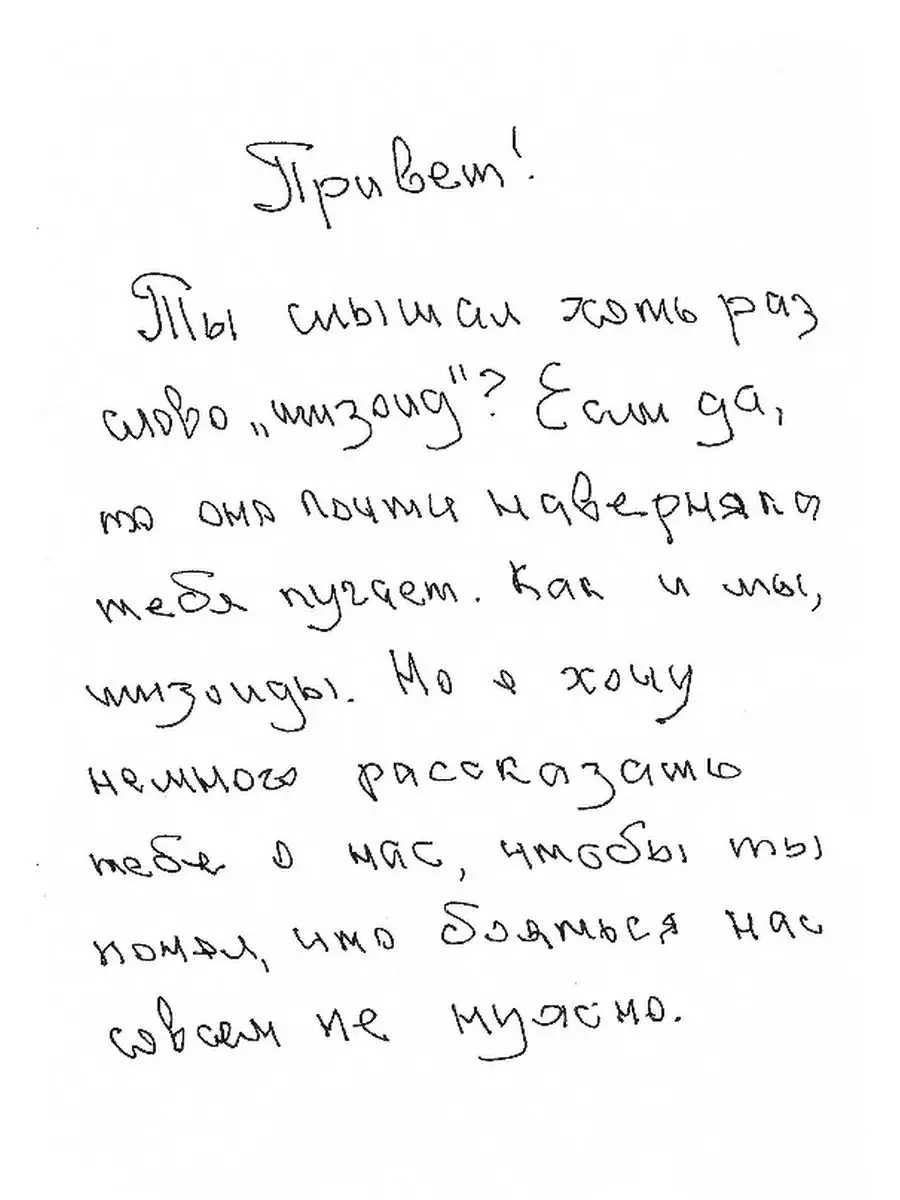 Привет!
Ты слышал хоть раз
слово „шизоид"? Если да,
то оно почти наверняка
тебя пугает. Как и мы,
шизоиды. Но я хочу
немного рассказать
тебе о нас, чтобы ты
понял, что бояться нас
совсем не нужно.